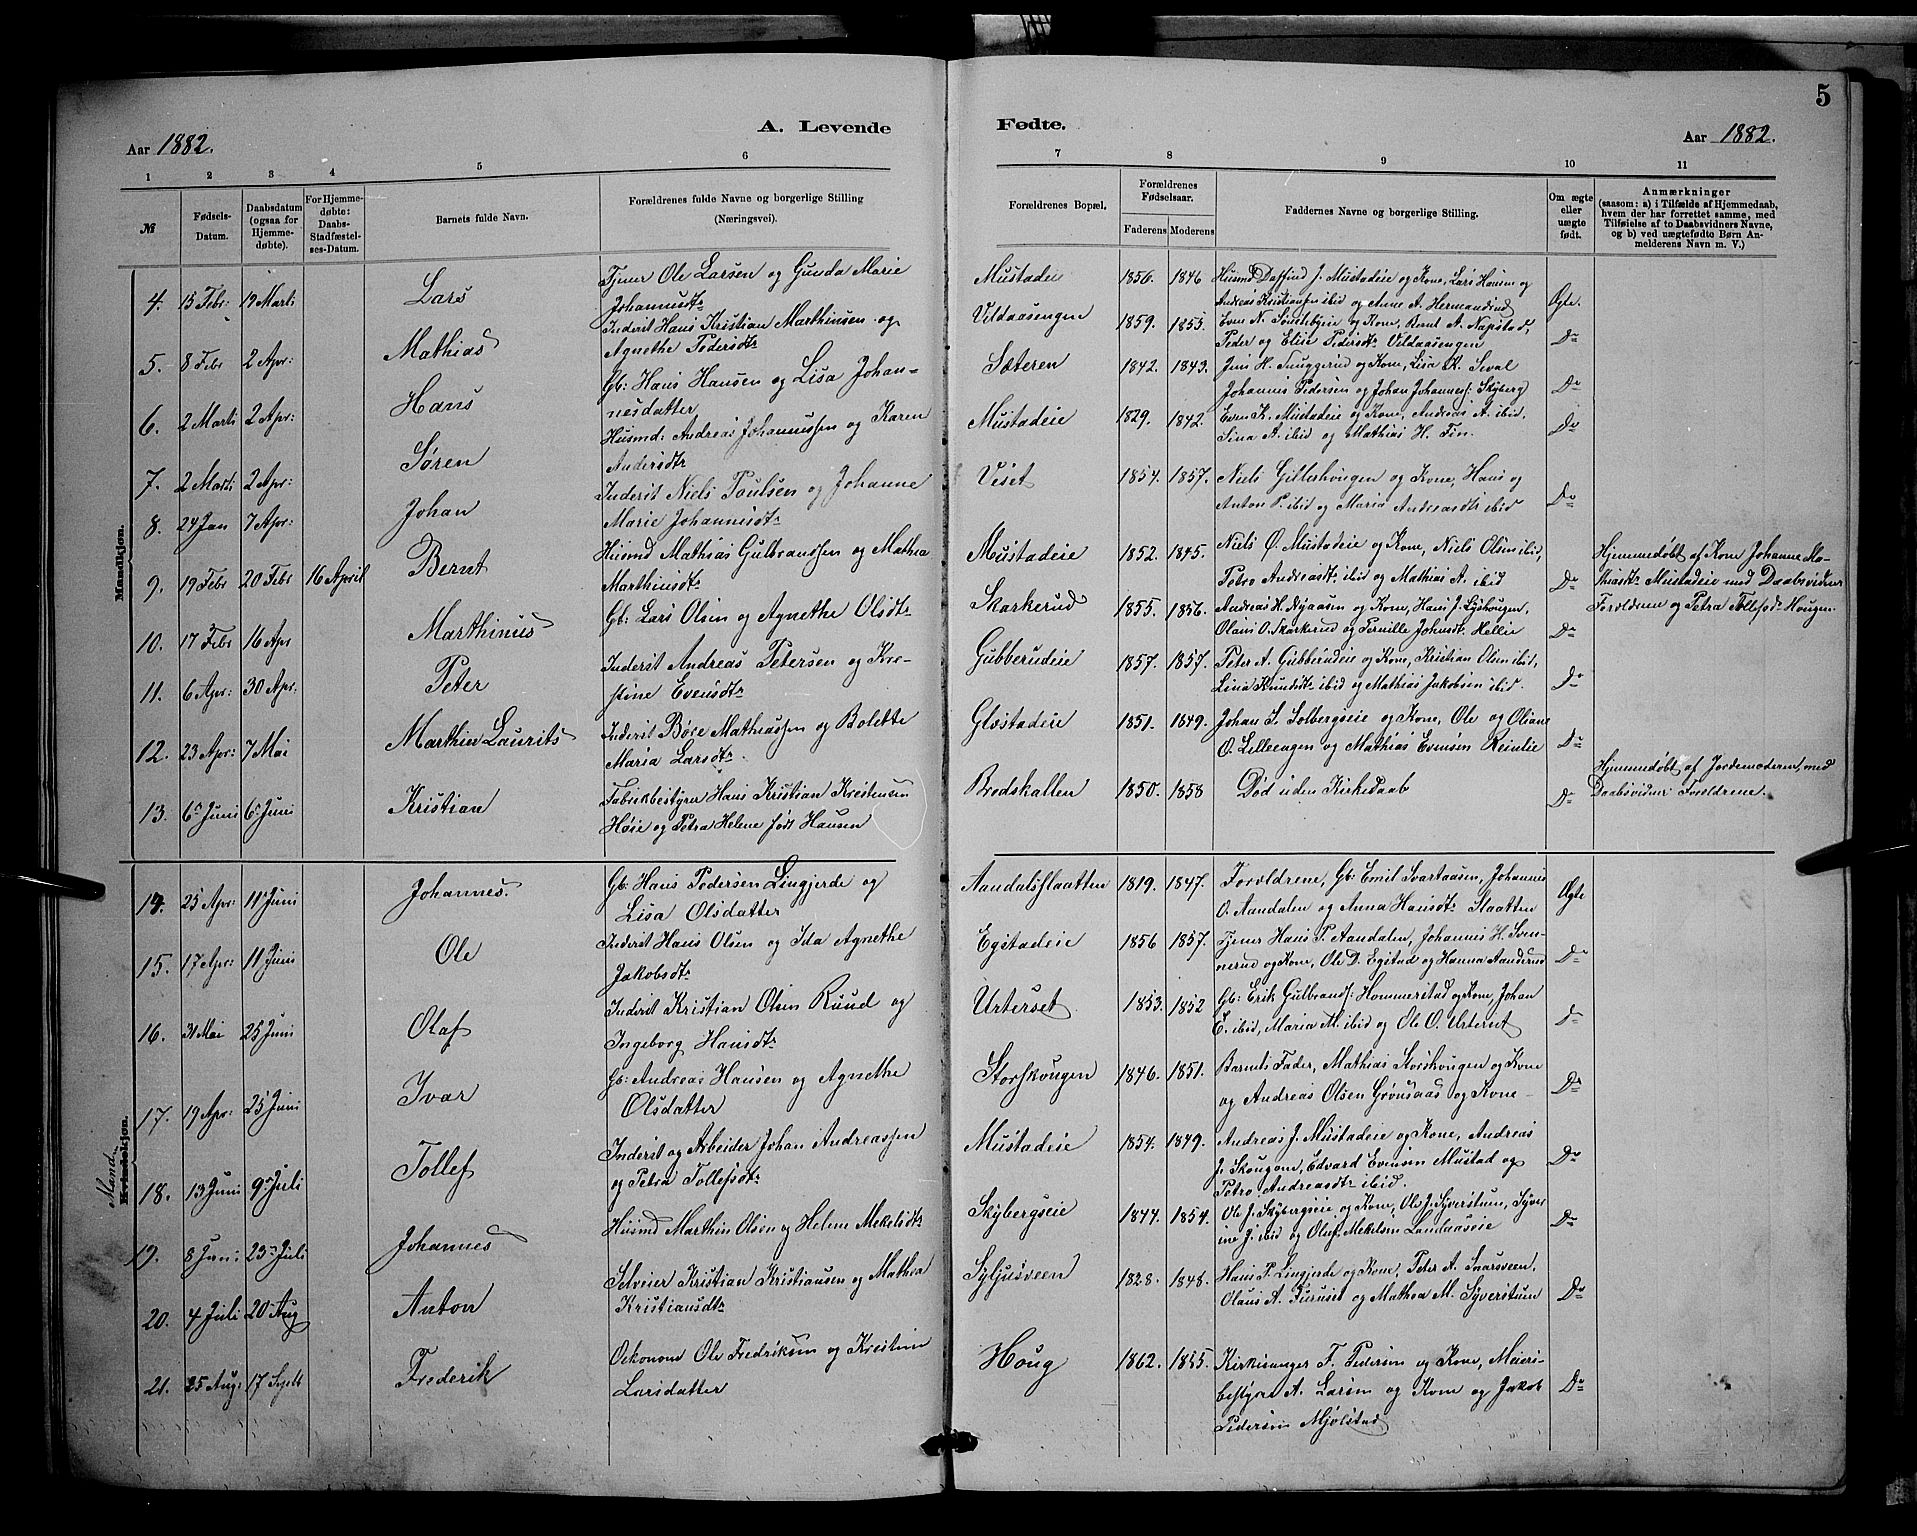 5
A. Levende
Fødte.
Aar 1882.
Aar 1882.
1 2 3 4 5 6
7 8 9 10 11
№
Fødsels-
Datum.
Daabsdatum
(ogsaa for
Hjemme-
døbte).
For Hjemme-
døbte:
Daabs-
Stadfæstel-
ses-Datum.
Barnets fulde Navn.
Forældrenes fulde Navne og borgerlige Stilling
(Næringsvei).
Forældrenes Bopæl.
Forældrenes
Fødselsaar.
Faderens Moderens
Faddernes Navne og borgerlige Stilling.
Om ægte
eller
uægte
født.
Anmærkninger
(saasom: a) i Tilfælde af Hjemmedaab,
hvem der har forrettet samme, med
Tilføielse af to Daabsvidners Navne,
og b) ved uægtefødte Børn An-
melderens Navn m. V.)
Mandkjøn.
4. 15 Febr: 19 Marti Lars
Tjener Ole Larsen og Gunda Marie
Johannesdtr
Mustadeie 1856. 1846
Husmd Daffind J. Mustadeie og Kone, Lars Hansen og
Andreas Kristiansen ibid og Anne A. Hermandrud
Ægte.
5. 8 Febr 2 Apr: Mathias
Inderst Hans Kristian Marthinsen og
Agnethe Pedersdtr
Vildaasengen 1859. 1855.
Even N. Sønstebyeie og Kone, Bernt A. Napstad,
Peder og Elise Pedersdtr Vildaasengen
Do
6. 2 Marti 2 Apr: Hans
Gb: Hans Hansen og Lisa Johan-
nesdatter
Sæteren 1842. 1843.
Jens H. Snuggerud og Kone, Lisa K. Sevel
Johannes Pedersen og Johan Johanness: Skyberg
Do
7. 2 Marti 2 Apr: Søren
Husmd: Andreas Johannessen og Karen
Andersdtr
Mustadeie 1829. 1842.
Even K. Mustadeie og Kone, Andreas A. ibid,
Sina A. ibid og Mathias H. Fin.
Do
8. 24 Jan 7 Apr: Johan
Inderst Niels Poulsen og Johanne
Marie Johannesdtr
Viset 1854. 1857.
Niels Gillershougen og Kone, Hans og
Anton P. ibid og Maria Andreasdtr ibid
Do
9. 19 Febr 20 Febr 16 April Bernt
Husmd Mathias Gulbrandsen og Mathea
Marthinsdtr
Mustadeie 1852. 1845.
Niels O. Mustadeie og Kone, Niels Olsen ibid,
Petra Andreasdtr ibid og Mathias A. ibid
Do
Hjemmedøbt af Kone Johanne Ma-
thiasdtr Mustadeie med Daabsvidner
Forældrene og Petra Tollefsdtr Hougen
10. 17 Febr 16 Apr Marthinus
Gb: Lars Olsen og Agnethe Olsdtr
Skarkerud 1855. 1856.
Andreas H. Nyaasen og Kone, Hans J. Lyshougen,
Olaus O. Skarkerud og Pernille Johnsdtr Hellie
Do
11. 6 Apr: 30 Apr: Peter
Inderst Andreas Petersen og Kre-
stine Evensdtr
Gubberudeie 1857. 1857.
Peter A. Gubberudeie og Kone, Kristian Olsen ibid,
Lina Knudsdtr ibid og Mathias Jakobsen ibid.
Do
12. 23 Apr: 7 Mai Marthin Laurits
Inderst Børe Mathiassen og Bolette
Maria Larsdtr.
Glæstadeie 1851. 1849.
Johan S. Solbergseie og Kone, Ole og Oliane
O. Lilleengen og Mathias Evensen Reinlie
Do
13. 6 Juni 6 Juni Kristian
Fabrikbestyrer Hans Kristian Kristensen
Høie og Petra Helene født Hansen
Bredskallen 1850. 1858
Død uden Kirkedaab
Do
Hjemmedøbt af Jordemoderen, med
Daabsvidner Forældrene.
Mand
Kvindekjøn.
14. 25 Apr: 11 Juni Johannes.
Gb: Hans Pedersen Lingjerde og
Lisa Olsdatter
Aandalsflaatten 1819. 1847.
Forældrene, Gb: Emil Svartaasen, Johannes
O. Aandalen og Anna Hansdtr Slaatten
Ægte
15. 17 Apr: 11 Juni Ole
Inderst Hans Olsen og Ida Agnethe
Jakobsdtr
Egstadeie 1856 1857.
Tjener Hans P. Aandalen, Johannes H. Sven-
nerud og Kone, Ole D. Egstad og Hanna Aanderud
Do
16. 31 Mai 25 Juni Olaf
Inderst Kristian Olsen Ruud og
Ingeborg Hansdtr
Urterset 1853. 1852
Gb: Erik Gulbrands: Hommerstad og Kone, Johan
E. ibid, Maria M. ibid og Ole O. Urterset
Do
17. 19 Apr: 25 Juni Ivar
Gb: Andreas Hansen og Agnethe
Olsdatter
Storskougen 1846. 1851.
Barnets Fader, Mathias Storskougen og Kone
og Andreas Olsen Grønsaas og Kone
Do
18. 13 Juni 9 Juli Tollef
Inderst og Arbeider Johan Andreassen
og Petra Tollefsdtr
Mustadeie 1854. 1849.
Andreas J. Mustadeie og Kone, Andreas
J. Skougom, Edvard Evensen Mustad og
Petra Andreasdtr ibid.
Do
19. 8 Juni 23 Juli Johannes
Husmd Marthin Olsen og Helene Mekelsdtr
Skybergseie 1844. 1854.
Ole J. Skybergseie og Kone, Ole J. Syverstuen, Syver
ine J. ibid og Oluf Mekelsen Landaaseie
Do
20. 4 Juli 20 Aug Anton
Selveier Kristian Kristiansen og Mathea
Kristiansdtr
Syljusveen 1828. 1848.
Hans P. Lingjerde og Kone, Peter A. Snarsveen,
Olaus A. Furuset og Mathea M. Syverstuen
Do
21. 25 Aug: 17 Septb Frederik
Oekonom Ole Fredriksen og Kristine
Larsdatter
Houg 1862. 1855.
Kirkesanger F. Pedersen og Kone, Meieri-
bestyrer A. Larsen og Kone og Jakob
Pedersen Mjølstad
Do